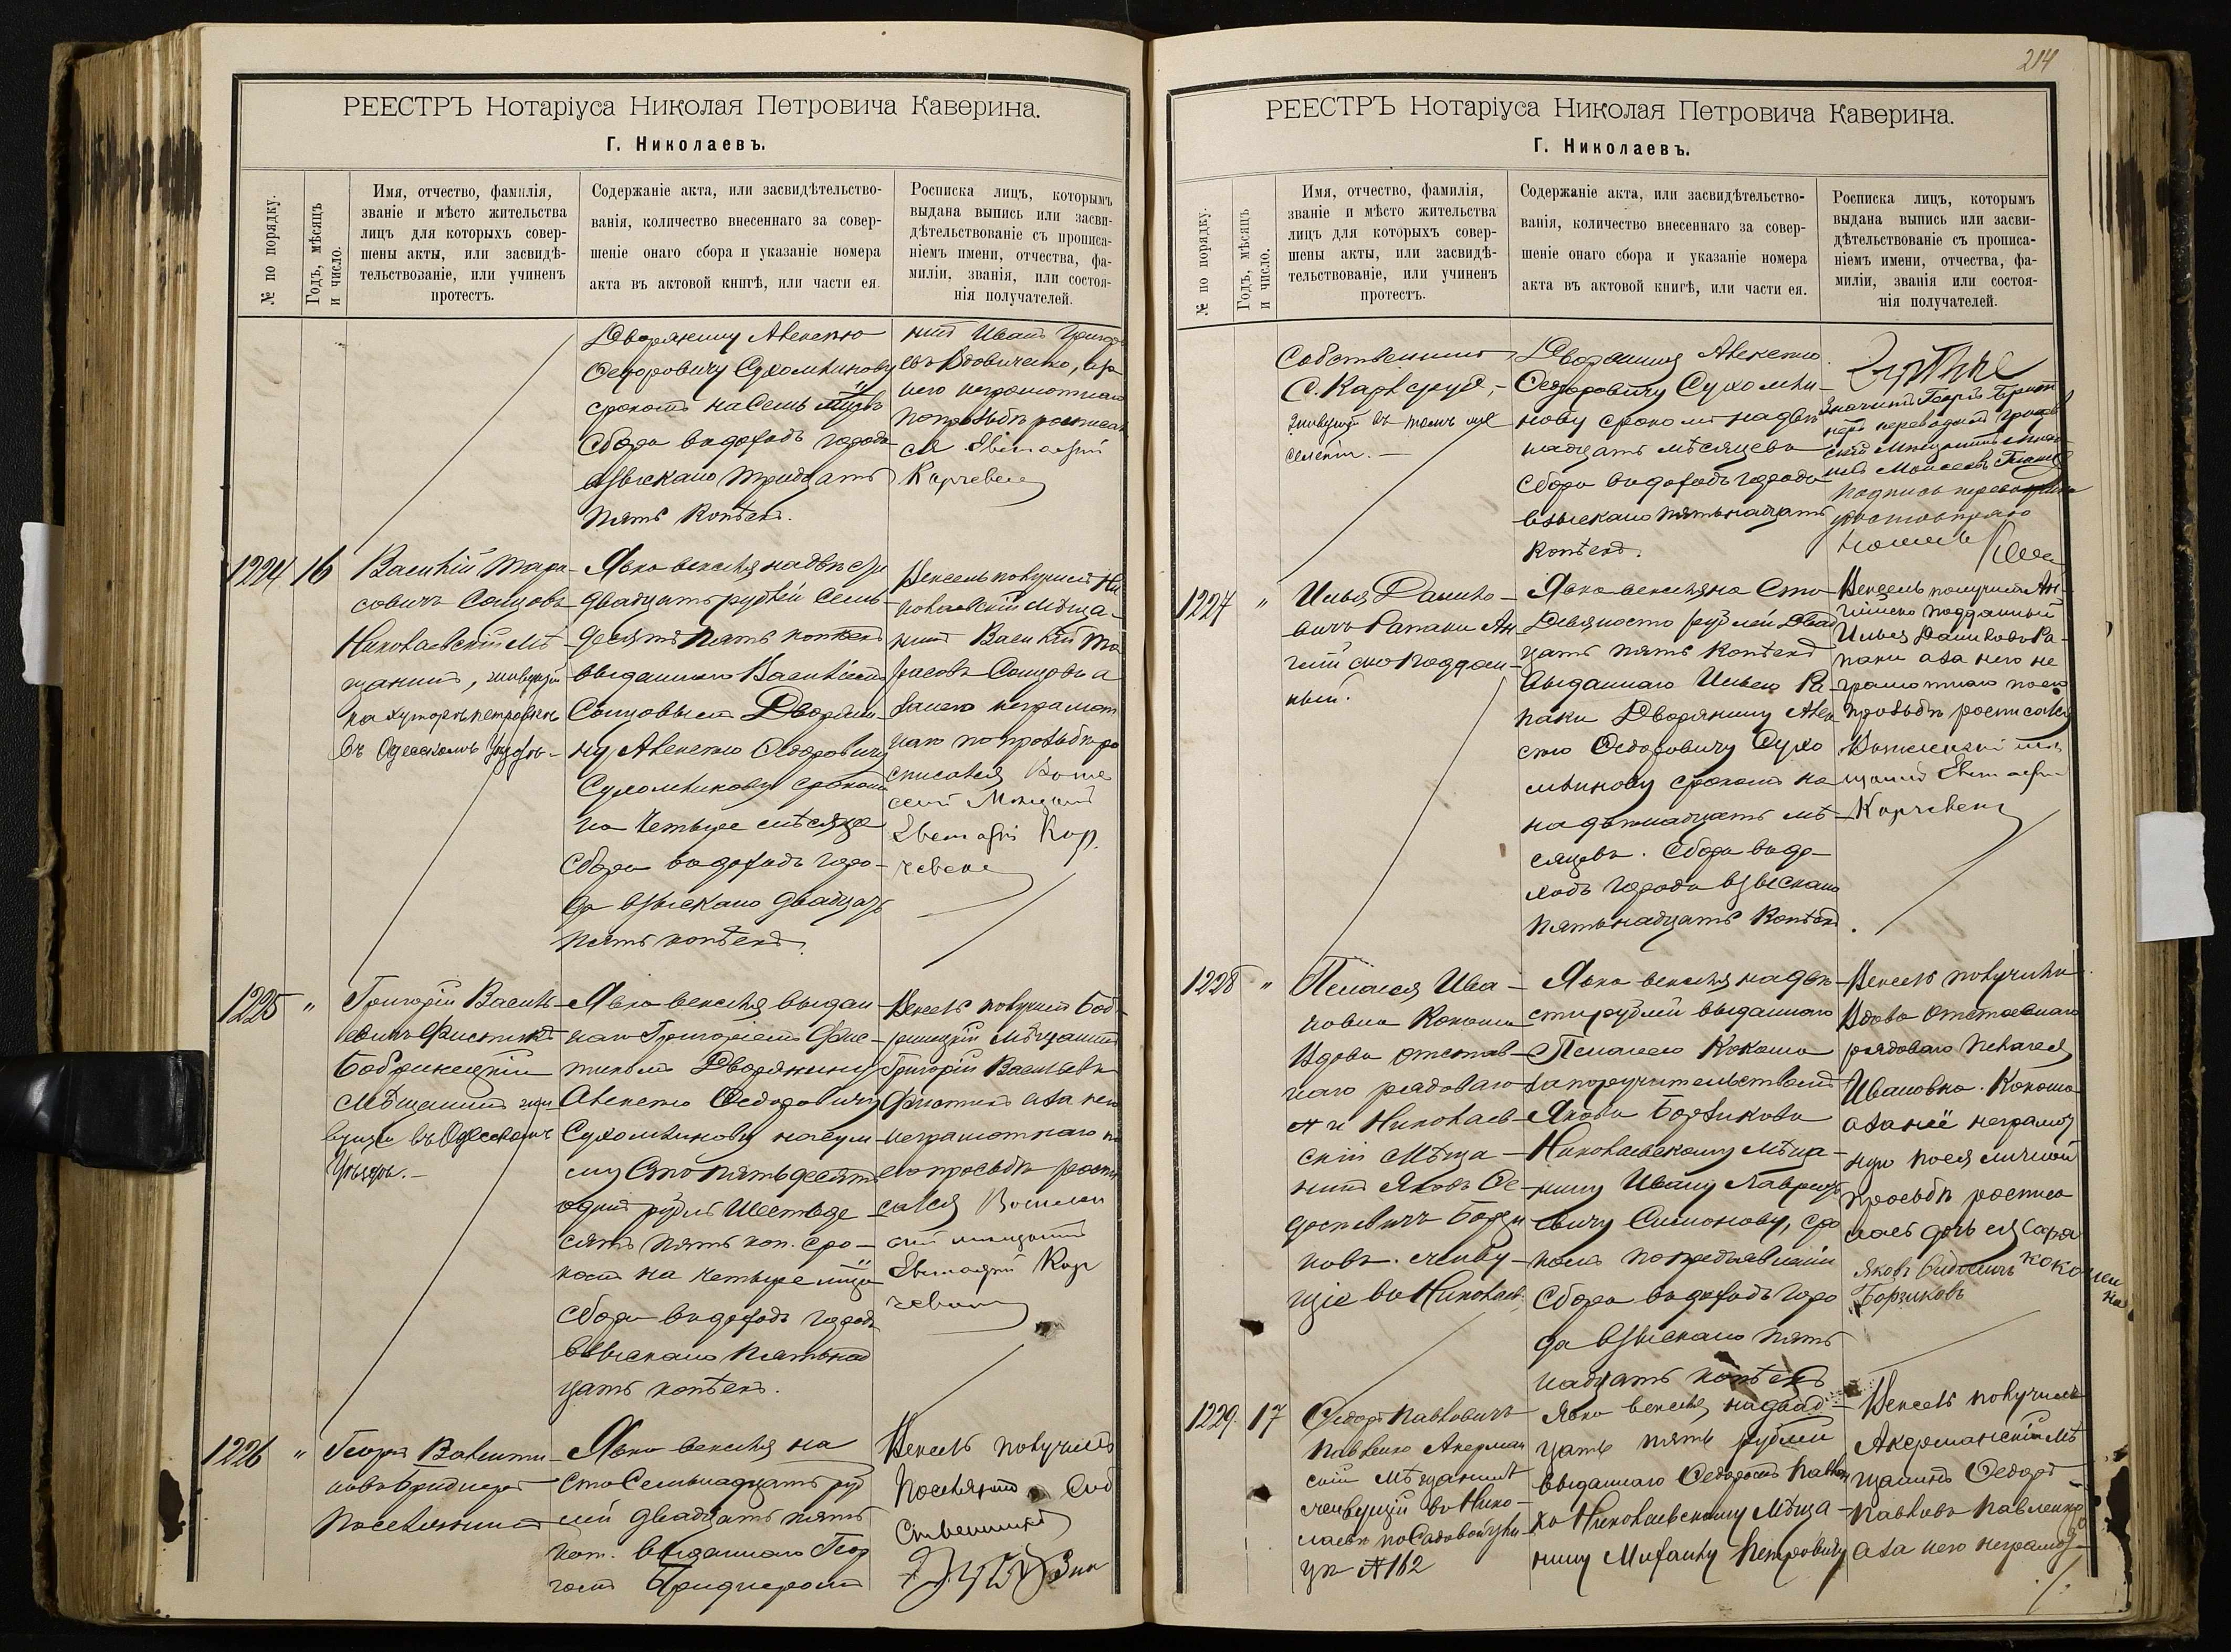 РЕЕСТРЪ Нотаріуса Николая Петровича Каверина.
Г. Николаевъ.
№ по порядку.
Годъ, мѣсяцъ
и число.
Имя, отчество, фамилія,
званіе и мѣсто жительства
лицъ для которыхъ совер-
шены акты, или засвидѣ-
тельствованіе, или учиненъ
протестъ.
Содержаніе акта, или засвидѣтельство-
ванія, количество внесеннаго за совер-
шеніе онаго сбора и указаніе номера
акта въ актовой книгѣ, или части ея.
Росписка лицъ, которымъ
выдана выпись или засви-
дѣтельствованіе съ прописа-
ніемъ имени, отчества, фа-
миліи, званія, или состоя-
нія получателей.
Дворянину Алексѣю
Ѳедоровичу Сухомлинову
срокомъ на семь мѣсц
Сбора въ доходъ города
взыскано тридцать
пять копѣекъ.
нинъ Иванъ Григорь
евъ Вдовиченко, а за
него неграмотнаго
по просьбѣ росписал
ся Евстафій
Карчевскій
1224 16
Василій Тара-
совичъ Солцовъ
Николаевскій мѣ-
щанинъ, живущій
на хуторѣ Петровскѣ
въ Одесскомъ уѣздѣ.-
Явка векселя на двѣсти
двадцать рублей семь-
десятъ пять копѣекъ
выданнаго Василіемъ
Солцовымъ Дворяни-
ну Алексѣю Ѳедоровичу
Сухомлинову срокомъ
на четыре мѣсяца
Сбора въ доходъ горо-
да взыскано двадцать
пять копѣекъ.
Вексель получилъ Ни
колаевскій мѣща-
нинъ Василій Та
расовъ Солцовъ а
за него неграмот
наго по просьбѣ ро
списался
Мѣщанинъ
Евстафій Кар
чевскі
1225 "
Григорій Василь-
евичъ Фистикъ
Бобринецкій
мѣщанинъ жи
вущій въ Одесскомъ
уѣздѣ.-
Явка векселя выдан
наго Григоріемъ Фис-
тикомъ Дворянину
Алексѣю Ѳедоровичу
Сухомлинову на сум-
му сто пятьдесятъ
одинъ рубль шестьде
сятъ пять коп. сро-
комъ на четыре мѣсц
Сбора въ доходъ города
взыскано пятьнад
цать копѣекъ.
Вексель получилъ Боб
ринецкій мѣщанинъ
Григорій Васильевъ
Фистикъ а за него
неграмотнаго по
его просьбѣ роспи
сался
скій мѣщанинъ
Евстафій Кар
чевскі
1226 "
Георгъ Валенти-
новъ Бридигеръ
поселянинъ
Явка векселя на
сто семьнадцать руб
лей двадцать пять
коп. выданнаго Геор
гомъ Бридигеромъ
Вексель получилъ
поселянинъ Соб
ственникъ
Зна
214
РЕЕСТРЪ Нотаріуса Николая Петровича Каверина.
Г. Николаевъ.
№ по порядку.
Годъ, мѣсяцъ
и число.
Имя, отчество, фамилія,
званіе и мѣсто жительства
лицъ для которыхъ совер-
шены акты, или засвидѣ-
тельствованіе, или учиненъ
протестъ.
Содержаніе акта, или засвидѣтельство-
ванія, количество внесеннаго за совер-
шеніе онаго сбора и указаніе номера
акта въ актовой книгѣ, или части ея.
Росписка лицъ, которымъ
выдана выпись или засви-
дѣтельствованіе съ прописа-
ніемъ имени, отчества, фа-
миліи, званія или состоя-
нія получателей.
Собственникъ
с. Карлсруэ,-
живущій въ томъ же
селеніи.-
Дворянину Алексѣю
Ѳедоровичу Сухомли-
нову срокомъ на двѣ
надцать мѣсяцевъ
Сбора въ доходъ города
взыскано пятьнадцать
копѣекъ.
значитъ Георгъ
переводилъ
мѣщанинъ
Моисеевъ
подпись переводчика
удостовѣряю
1227 "
Илья Данило-
вичъ Рапаки Ан
глійско подддан-
ный.
Явка векселя на сто
девяносто рублей двад
цать пять копѣекъ
выданнаго Ильею Ра-
паки Дворянину Алек
сѣю Ѳедоровичу Сухо
млинову срокомъ на
на двѣнадцать мѣ-
сяцевъ. Сбора въ до-
ходъ города взыскано
пятьнадцать копѣекъ.
Вексель получилъ Ан-
глійско подданный
Илья Даниловъ Ра-
паки а за него не
грамотнаго по его
просьбѣ росписался
мѣ
щанинъ Евстафій
Карчевскі
1228 "
Пелагея Ива-
новна Кокоша
Вдова отстав-
наго рядоваго
и Николаев-
скій мѣща-
нинъ Яковъ Ѳе-
досіевичъ Борзи
ковъ. живу-
щіе въ Николаевѣ.
Явка векселя на двѣ
сти рублей выданнаго
Пелагеею Кокоша
за поручительствомъ
Якова Борзикова
Николаевскому мѣща-
нину Ивану Лаврентье
вичу Симонову, сро
комъ по предъявленіи
Сбора въ доходъ горо
да взыскано пять
надцать копѣекъ
Вексель получила
Вдова отставнаго
рядоваго Пелагея
Ивановна Кокоша
а за неё неграмот
ную по ея личной
просьбѣ росписа
лась дочь ея Сара
кокошен
ка
Яковъ Ѳидосіичъ
Борзиковъ
1229. 17
Ѳедоръ Павловичъ
Павленко Акерман
скій мѣщанинъ
живущій въ Нико-
лаевѣ по Садовой ули
цѣ № 162
Явка векселя на двад-
цать пять рублей
выданнаго Ѳедоромъ Павлен
ко Николаевскому мѣща-
нину Михаилу Петровичу
Вексель получилъ
Акерманскій мѣ
щанинъ Ѳедоръ
Павловъ Павленко
а за него неграмот-
./.